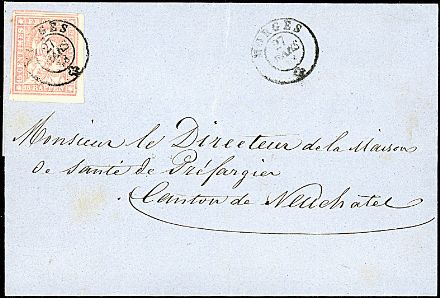 MORGES
27
MORGES
27
MARS
Monsieur le Directeur de la Maison
de santé de Préfargier
Canton de Neuchâtel